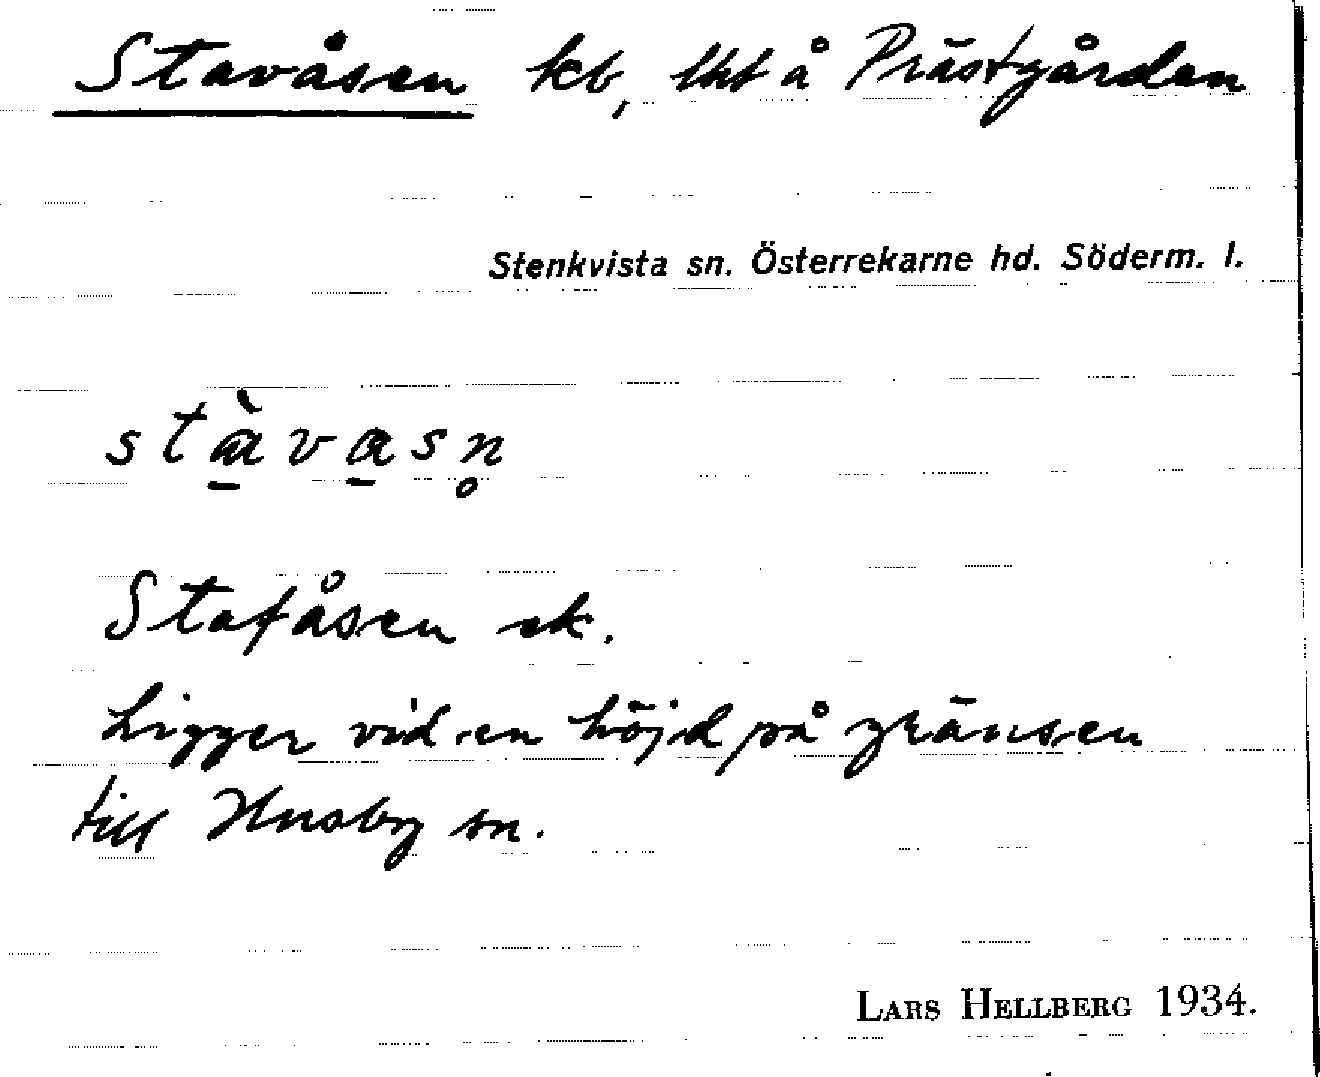 Stavåsen kb, tht å Prästgården
Stenkvista sn. Österrekarne hd. Söderm. l.
stàvasn̥
Stafåsen ek.
Ligger vid en höjd på gränsen
till Husby sn.
LARS HELLBERG 1934.